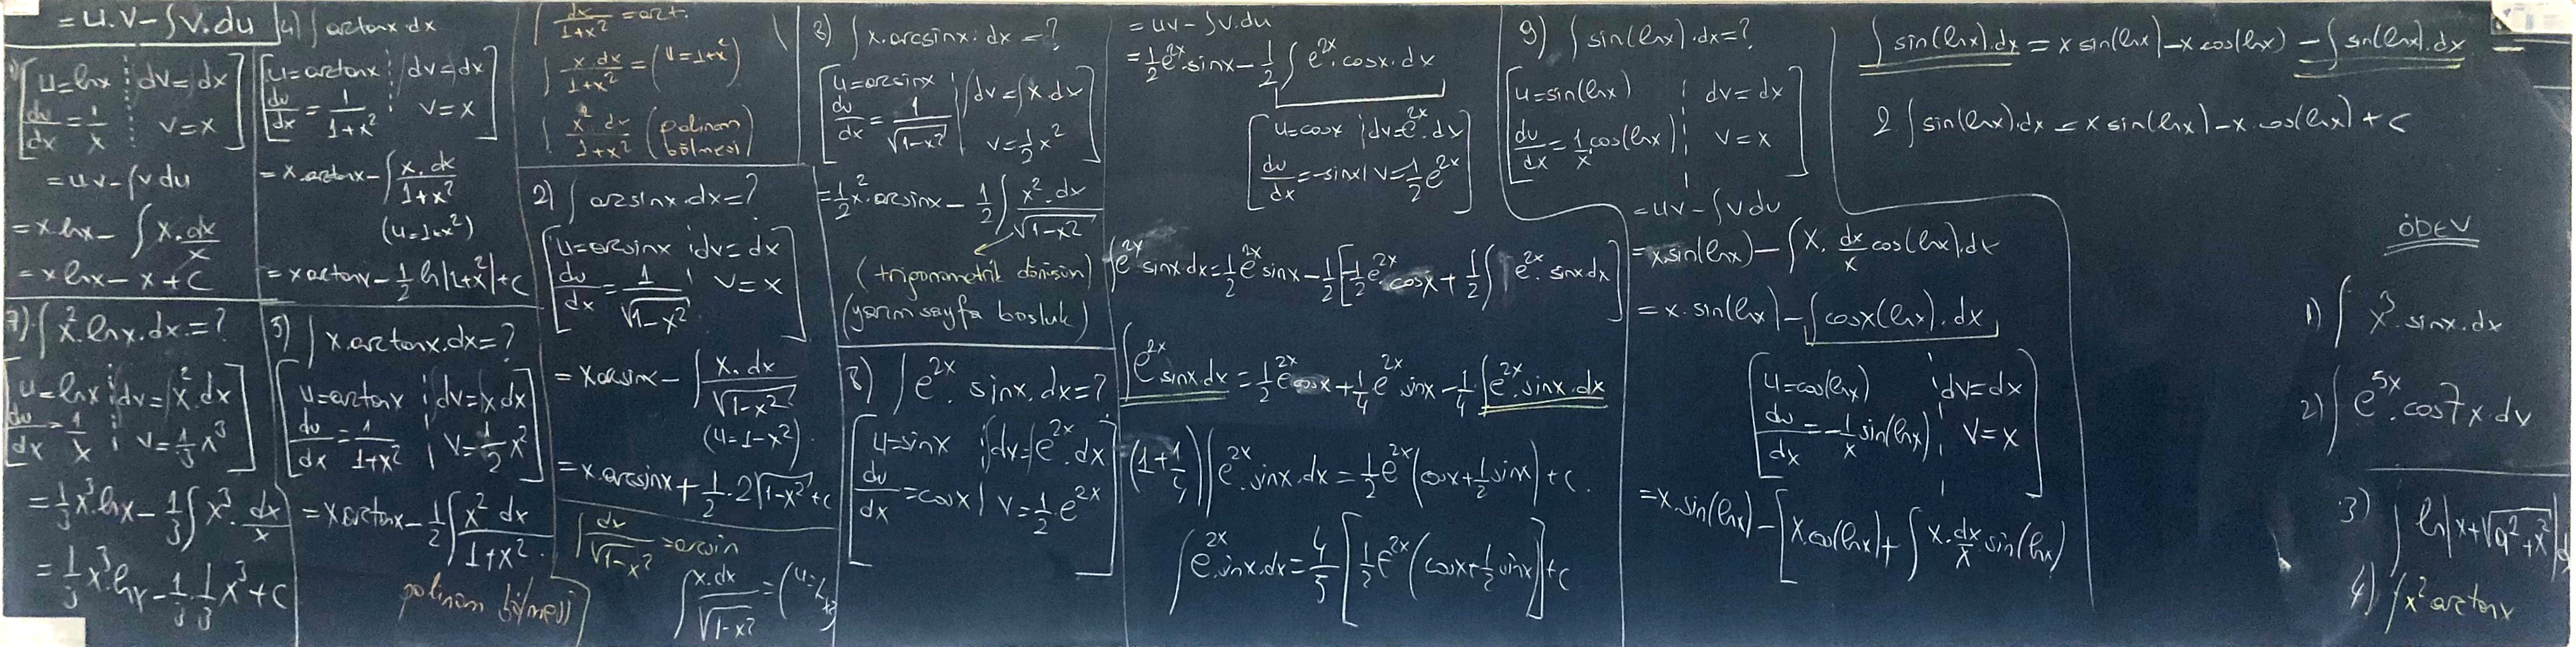 = u.v - ∫v.du
1) [u=lnx | dv=dx
du/dx = 1/x | v=x]
= uv - ∫v du
= x.lnx - ∫ x.dx/x
= x lnx - x + c
7) ∫x².lnx.dx = ?
[u=lnx | dv=∫x².dx
du/dx = 1/x | v=1/3 x³]
= 1/3 x³.lnx - 1/3 ∫x³.dx/x
= 1/3 x³.lnx - 1/3.1/3 x³ + c
4) ∫arctanx.dx
[u=arctanx | dv=dx
du/dx = 1/(1+x²) | v=x]
= x.arctanx - ∫ x.dx/(1+x²)
(u=1+x²)
= x arctanx - 1/2 ln|1+x²| + c
5) ∫x.arctanx.dx = ?
[u=arctanx | dv=∫x dx
du/dx = 1/(1+x²) | v=1/2 x²]
= x arctanx - 1/2 ∫ x² dx/(1+x²)
polinom bölmesi
∫ dx/(1+x²) = arct.
∫ x.dx/(1+x²) = (u=1+x²)
∫ x² dx/(1+x²) (polinom
bölmesi)
2) ∫arcsinx.dx = ?
[u=arcsinx | dv=dx
du/dx = 1/√(1-x²) | v=x]
= x arcsinx - ∫ x.dx/√(1-x²)
(u=1-x²)
= x.arcsinx + 1/2.2√(1-x²) + c
∫ dx/√(1-x²) = arcsin
∫ x.dx/√(1-x²)
3) ∫x.arcsinx.dx = ?
[u=arcsinx | dv=∫x.dx
du/dx = 1/√(1-x²) | v=1/2 x²]
= 1/2 x².arcsinx - 1/2 ∫ x².dx/√(1-x²)
(trigonometrik dönüşüm)
(yarım sayfa boşluk)
8) ∫e^2x.sinx.dx = ?
[u=sinx | ∫dv=∫e^2x.dx
du/dx = cosx | v=1/2.e^2x]
= uv - ∫v.du
= 1/2 e^2x.sinx - 1/2 ∫e^2x.cosx.dx
[u=cosx | dv=e^2x.dx
du/dx = -sinx | v=1/2 e^2x]
∫e^2x sinx dx = 1/2 e^2x sinx - 1/2 [1/2 e^2x.cosx + 1/2 ∫e^2x.sinx dx]
∫e^2x.sinx.dx = 1/2 e^2x cosx + 1/4 e^2x sinx - 1/4 ∫e^2x.sinx.dx
(1+1/4) ∫e^2x.sinx.dx = 1/2 e^2x (cosx + 1/2 sinx) + c.
∫e^2x.sinx.dx = 4/5 [1/2 e^2x (cosx + 1/2 sinx)] + c
9) ∫sin(lnx).dx = ?
[u=sin(lnx) | dv=dx
du/dx = 1/x cos(lnx) | v=x]
= uv - ∫v du
= x.sin(lnx) - ∫x.dx/x cos(lnx).dx
= x.sin(lnx) - ∫cosx(lnx).dx
[u=cos(lnx) | dv=dx
du/dx = -1/x sin(lnx) | v=x]
= x.sin(lnx) - [x.cos(lnx) + ∫x.dx/x.sin(lnx)
∫sin(lnx).dx = x sin(lnx) - x cos(lnx) - ∫sin(lnx).dx
2 ∫sin(lnx).dx = x sin(lnx) - x.cos(lnx) + c
ÖDEV
1) ∫x³.sinx.dx
2) ∫e^5x.cos7x.dx
3) ∫ln|x+√(a²+x²)|d
4) ∫x² arctanx